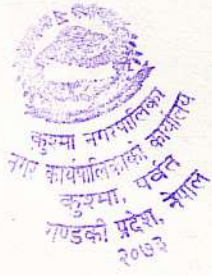 कुश्मा नगरपालिका
नगर कार्यपालिकाको कार्यालय
कुश्मा, पर्वत
गण्डकी प्रदेश, नेपाल
२०७३